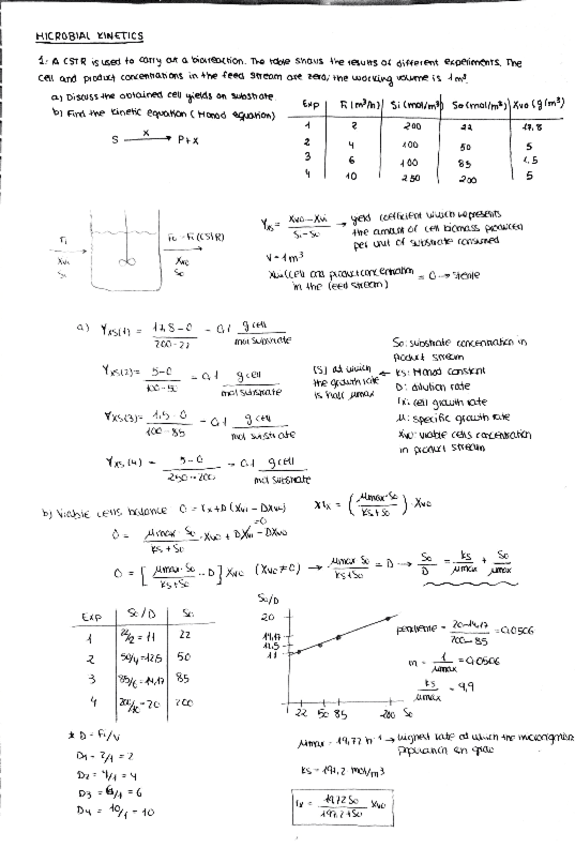 MICROBIAL KINETICS
1. A CSTR is used to carry out a bioreaction. The table shows the results of different experiments. The
cell and product concentrations in the feed stream are zero, the working volume is 1 m³.
a) Discuss the obtained cell yields on substrate.
b) Find the kinetic equation (Monod equation)
S —X→ P+X
Exp | Fi (m³/h) | Si (mol/m³) | So (mol/m³) | Xvo (g/m³)
1 | 2 | 200 | 22 | 17,8
2 | 4 | 100 | 50 | 5
3 | 6 | 100 | 85 | 1,5
4 | 10 | 250 | 200 | 5
Fi
Xvi
Si
Fo = Fi (CSTR)
Xvo
So
Yxs = (Xvo - Xvi) / (Si - So) → yield coefficient which represents
the amount of cell biomass produced
per unit of substrate consumed
V = 1 m³
Xvi (cell and product concentration = 0 → sterile
in the feed stream)
a) Yxs(1) = (17,8 - 0) / (200 - 22) = 0,1 g cell / mol substrate
Yxs(2) = (5 - 0) / (100 - 50) = 0,1 g cell / mol substrate
Yxs(3) = (1,5 - 0) / (100 - 85) = 0,1 g cell / mol substrate
Yxs(4) = (5 - 0) / (250 - 200) = 0,1 g cell / mol substrate
So: substrate concentration in
product stream
[S] at which ← Ks: Monod constant
the growth rate
is half μmax
D: dilution rate
rx: cell growth rate
μ: specific growth rate
Xvo: viable cells concentration
in product stream
b) Viable cells balance 0 = rx + D (Xvi - DXvo)
rx = (μmax · So / (Ks + So)) · Xvo
0 = μmax · So / (Ks + So) · Xvo + DXvi - DXvo
=0
0 = [μmax · So / (Ks + So) - D] Xvo (Xvo ≠ 0) → μmax So / (Ks + So) = D → So / D = Ks / μmax + So / μmax
Exp | So/D | So
1 | 22/2 = 11 | 22
2 | 50/4 = 12,5 | 50
3 | 85/6 = 14,17 | 85
4 | 200/10 = 20 | 200
* D = Fi/V
D1 = 2/1 = 2
D2 = 4/1 = 4
D3 = 6/1 = 6
D4 = 10/1 = 10
So/D
20
14,17
12,5
11
22 50 85 200 So
pendiente = (20 - 14,17) / (200 - 85) = 0,0506
m = 1 / μmax = 0,0506
Ks / μmax = 9,9
μmax = 19,72 h⁻¹ → highest rate at which the
population can grow
Ks = 197,2 mol/m³
rx = 19,72 So / (197,2 + So) Xvo